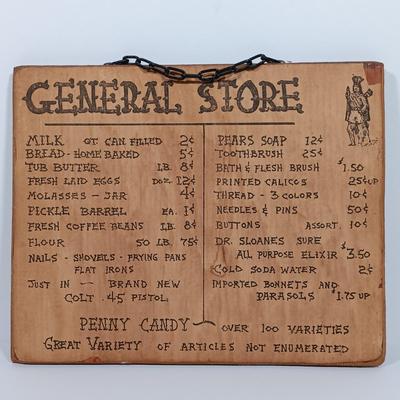 GENERAL STORE
MILK QT. CAN FILLED 2¢
BREAD - HOME BAKED 5¢
TUB BUTTER LB. 8¢
FRESH LAID EGGS DOZ. 12¢
MOLASSES - JAR 4¢
PICKLE BARREL EA. 1¢
FRESH COFFEE BEANS LB. 8¢
FLOUR 50 LB. 75¢
NAILS - SHOVELS - FRYING PANS
FLAT IRONS
JUST IN — BRAND NEW
COLT .45 PISTOL
PEARS SOAP 12¢
TOOTHBRUSH 25¢
BATH & FLESH BRUSH $1.50
PRINTED CALICOS 25¢ UP
THREAD - 3 COLORS 10¢
NEEDLES & PINS 50¢
BUTTONS ASSORT. 10¢
DR. SLOANES SURE
ALL PURPOSE ELIXIR $3.50
COLD SODA WATER 2¢
IMPORTED BONNETS AND
PARASOLS $1.75 UP
PENNY CANDY — OVER 100 VARIETIES
GREAT VARIETY OF ARTICLES NOT ENUMERATED